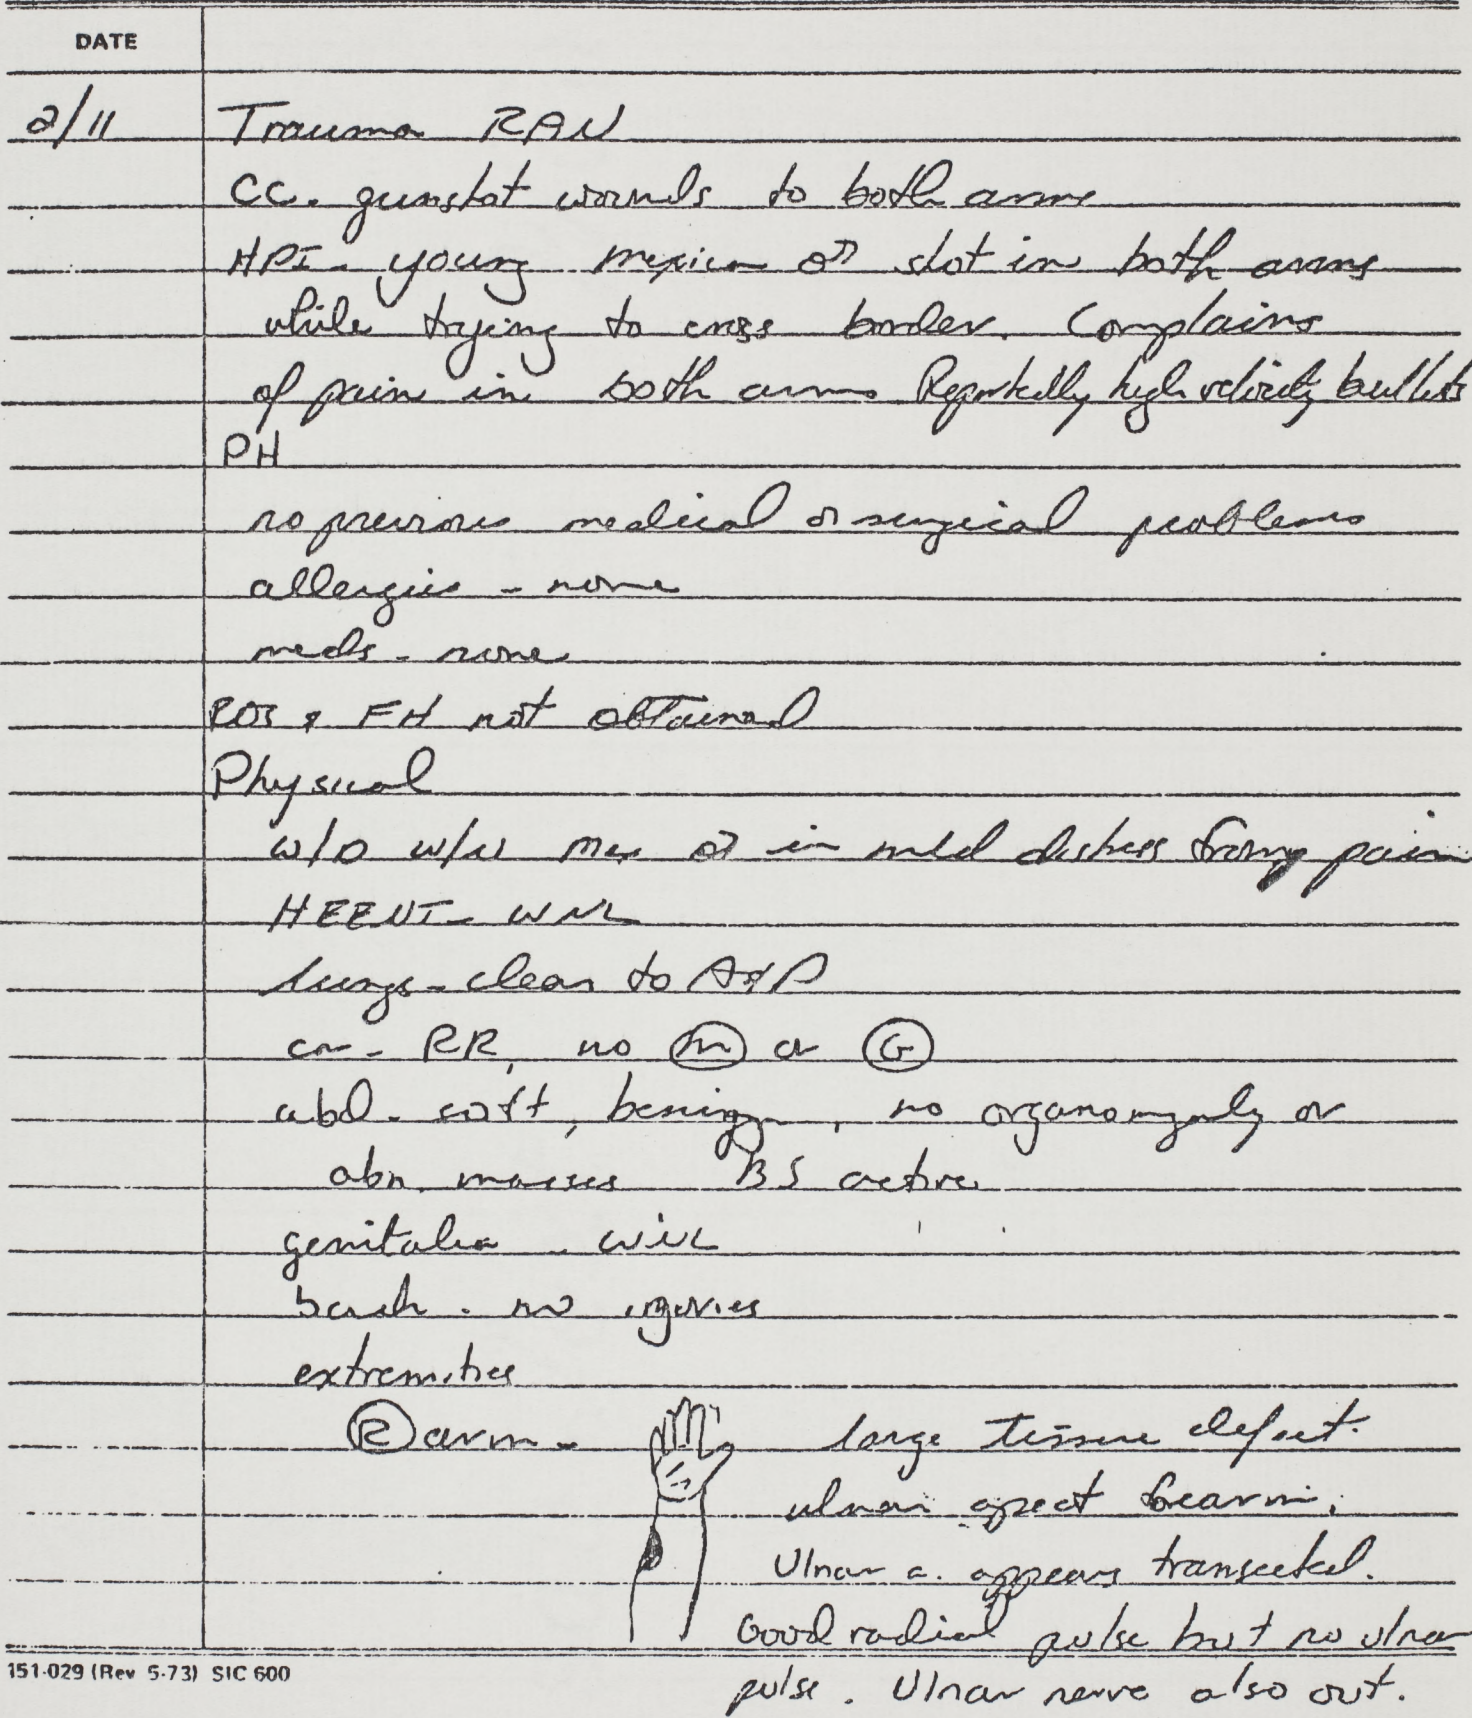 DATE
2/11 Trauma RAN
CC. gunshot wounds to both arms
HPI - young mexican ♂ shot in both arms
while trying to cross border. Complains
of pain in both arms Reportedly high velocity bullets
PH
no previous medical or surgical problems
allergies - none
meds - none
ROS & FH not obtained
Physical
W/D W/N Mex ♂ in mild distress from pain
HEENT - WNL
lungs - clear to A&P
cor - RR, no M or G
abd - soft, benign, no organomegaly or
abn. masses BS active
genitalia - WNL
back - no injuries
extremities
R arm - large tissue defect
ulnar aspect forearm.
Ulnar a. appears transected.
Good radial pulse but no ulnar
151-029 (Rev 5-73) SIC 600
pulse. Ulnar nerve also out.